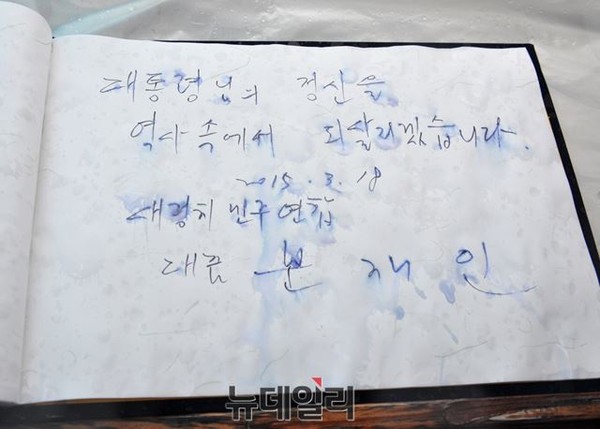 대통령님의 정신을
역사 속에서 되살리겠습니다.
2015. 3. 18
새정치민주연합
대표 문 재 인
뉴데일리